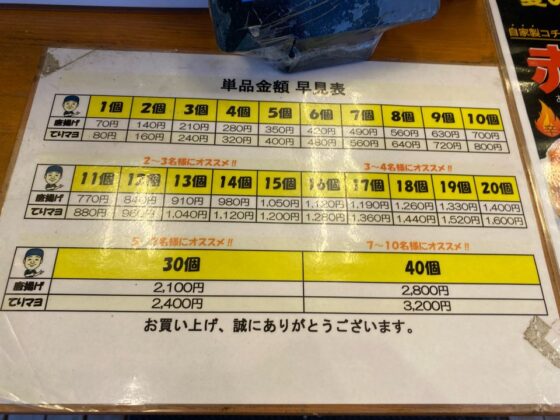 自家製コチ
単品金額 早見表
1個 2個 3個 4個 5個 6個 7個 8個 9個 10個
唐揚げ 70円 140円 210円 280円 350円 420円 490円 560円 630円 700円
てりマヨ 80円 160円 240円 320円 400円 480円 560円 640円 720円 800円
2〜3名様にオススメ!! 3〜4名様にオススメ!!
11個 12個 13個 14個 15個 16個 17個 18個 19個 20個
唐揚げ 770円 840円 910円 980円 1,050円 1,120円 1,190円 1,260円 1,330円 1,400円
てりマヨ 880円 960円 1,040円 1,120円 1,200円 1,280円 1,360円 1,440円 1,520円 1,600円
名様にオススメ!! 7〜10名様にオススメ!!
30個 40個
唐揚げ 2,100円 2,800円
てりマヨ 2,400円 3,200円
お買い上げ、誠にありがとうございます。